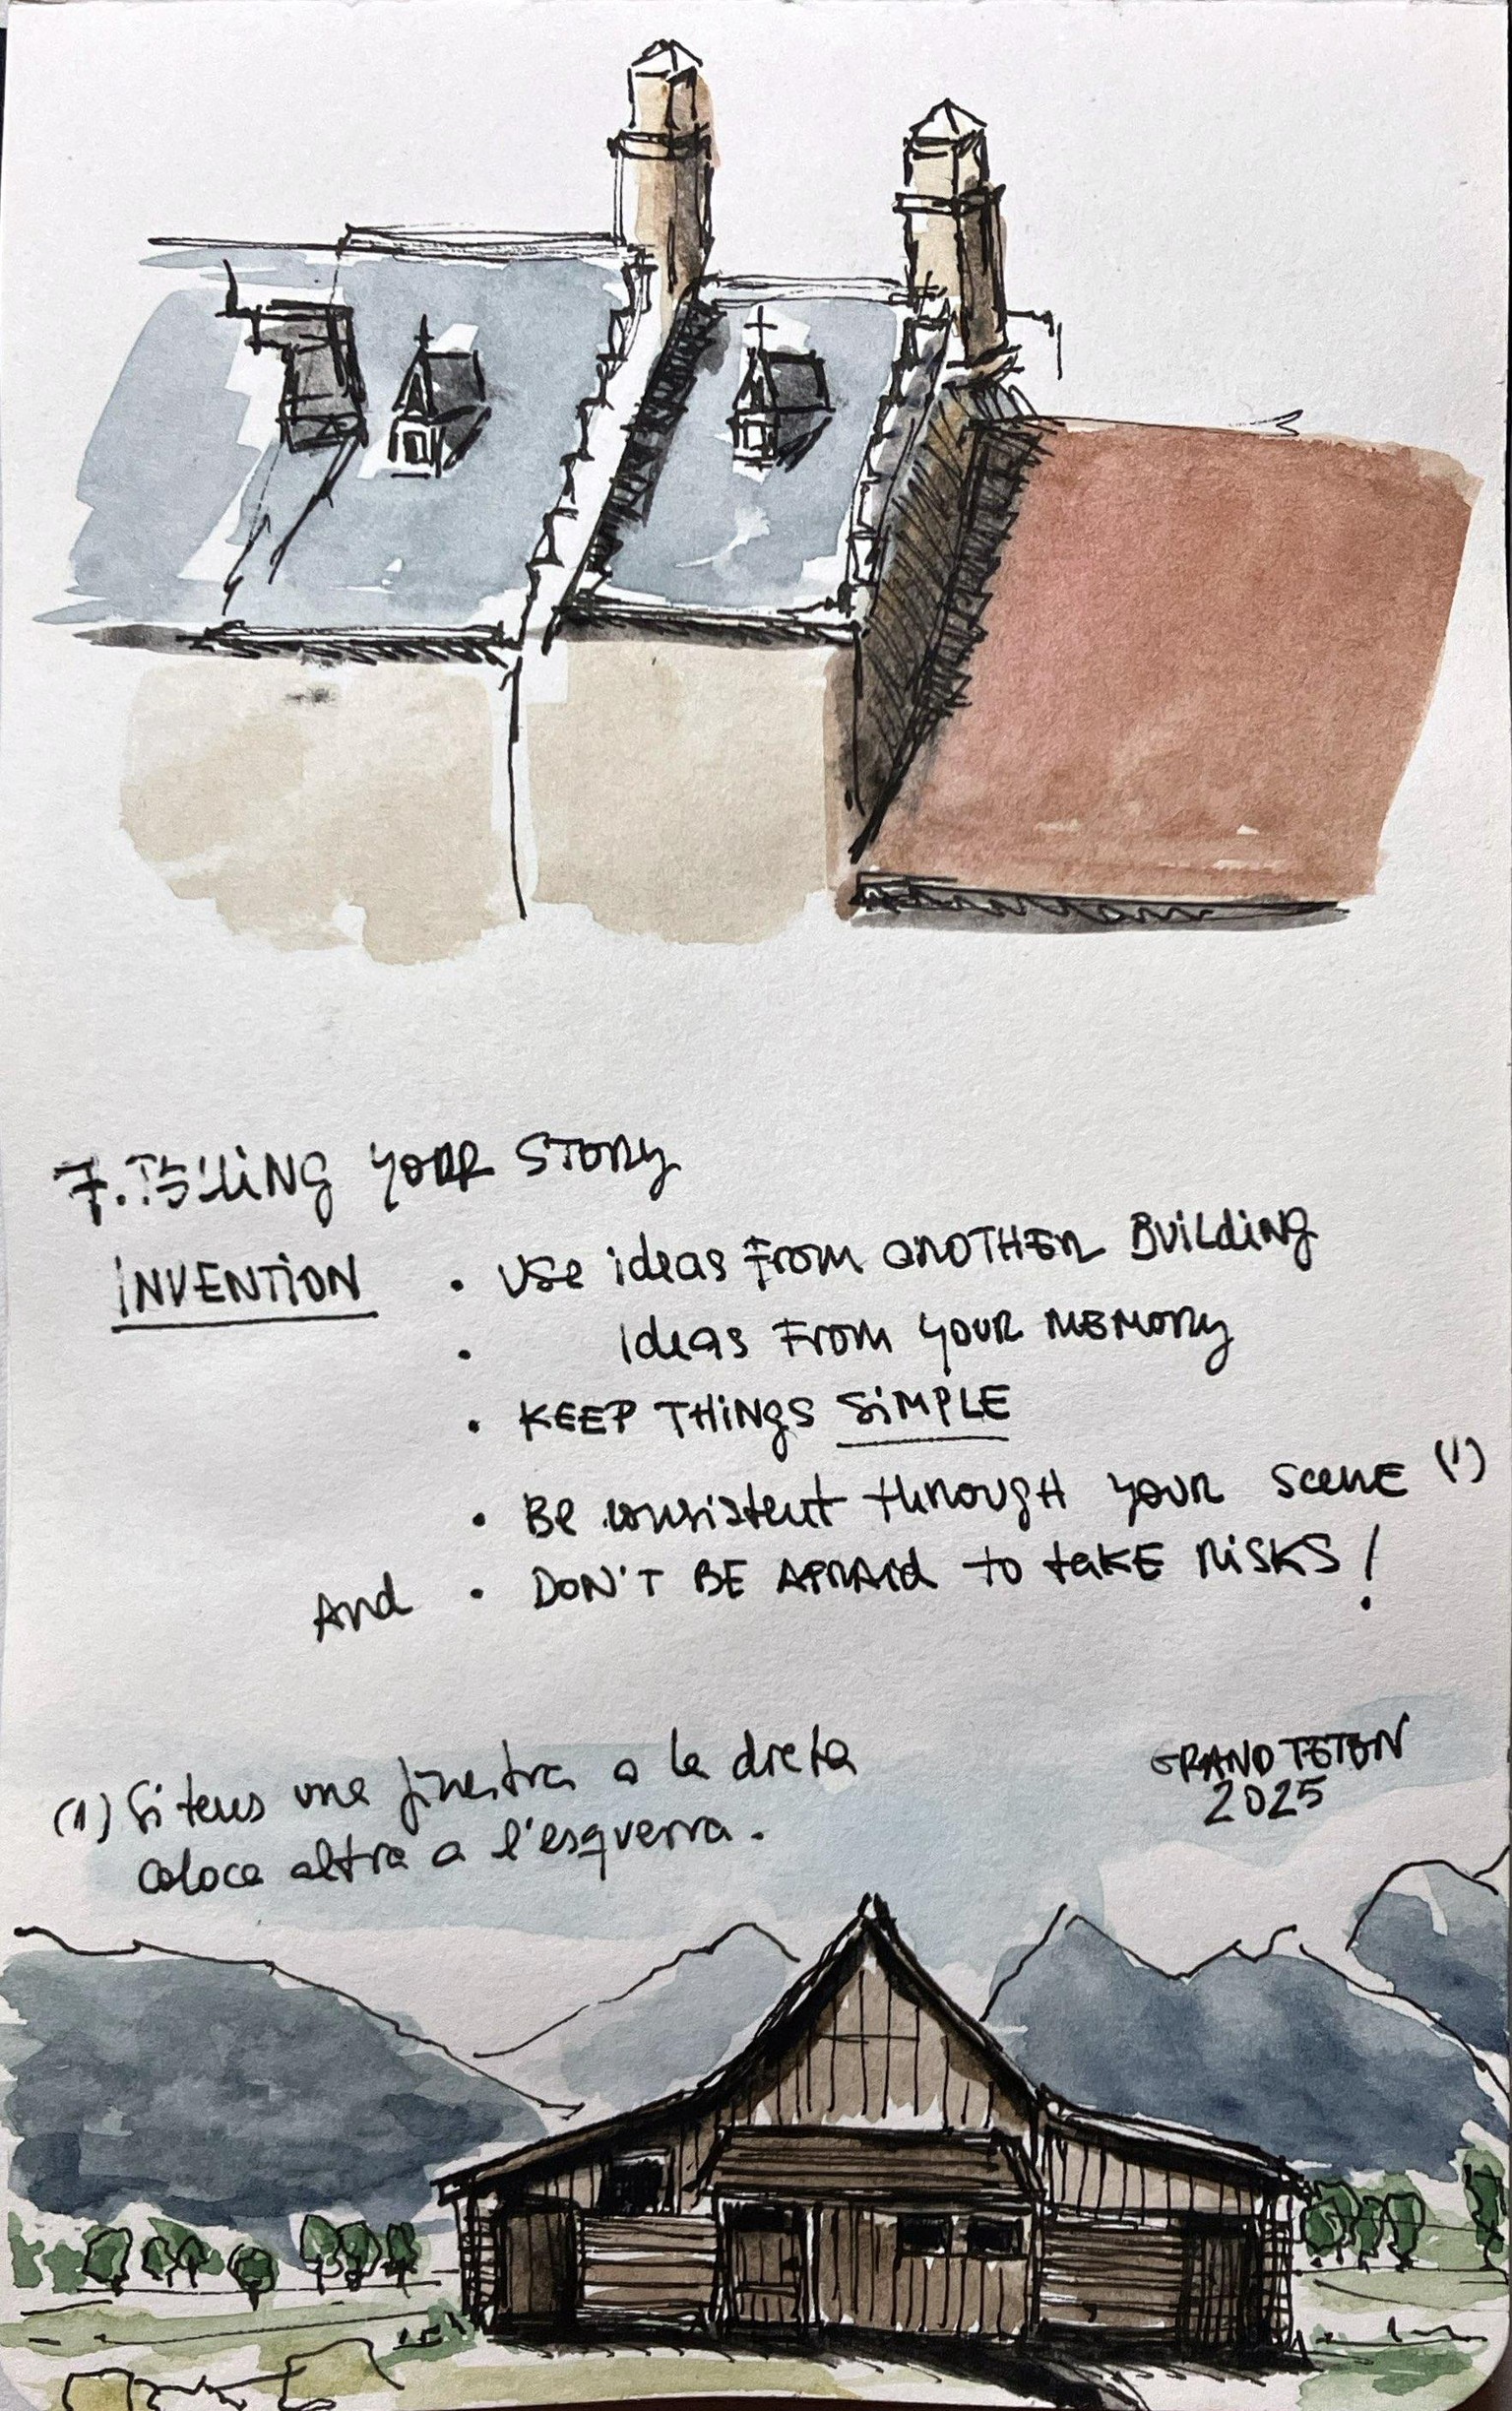 7. Telling your story
INVENTION • Use ideas from another building
• ideas from your memory
• KEEP THINGS SIMPLE
• Be consistent through your scene (1)
And • DON'T BE AFRAID to take risks!
(1) Si tens una finestra a la dreta
coloca altra a l'esquerra.
GRAND TETON
2025